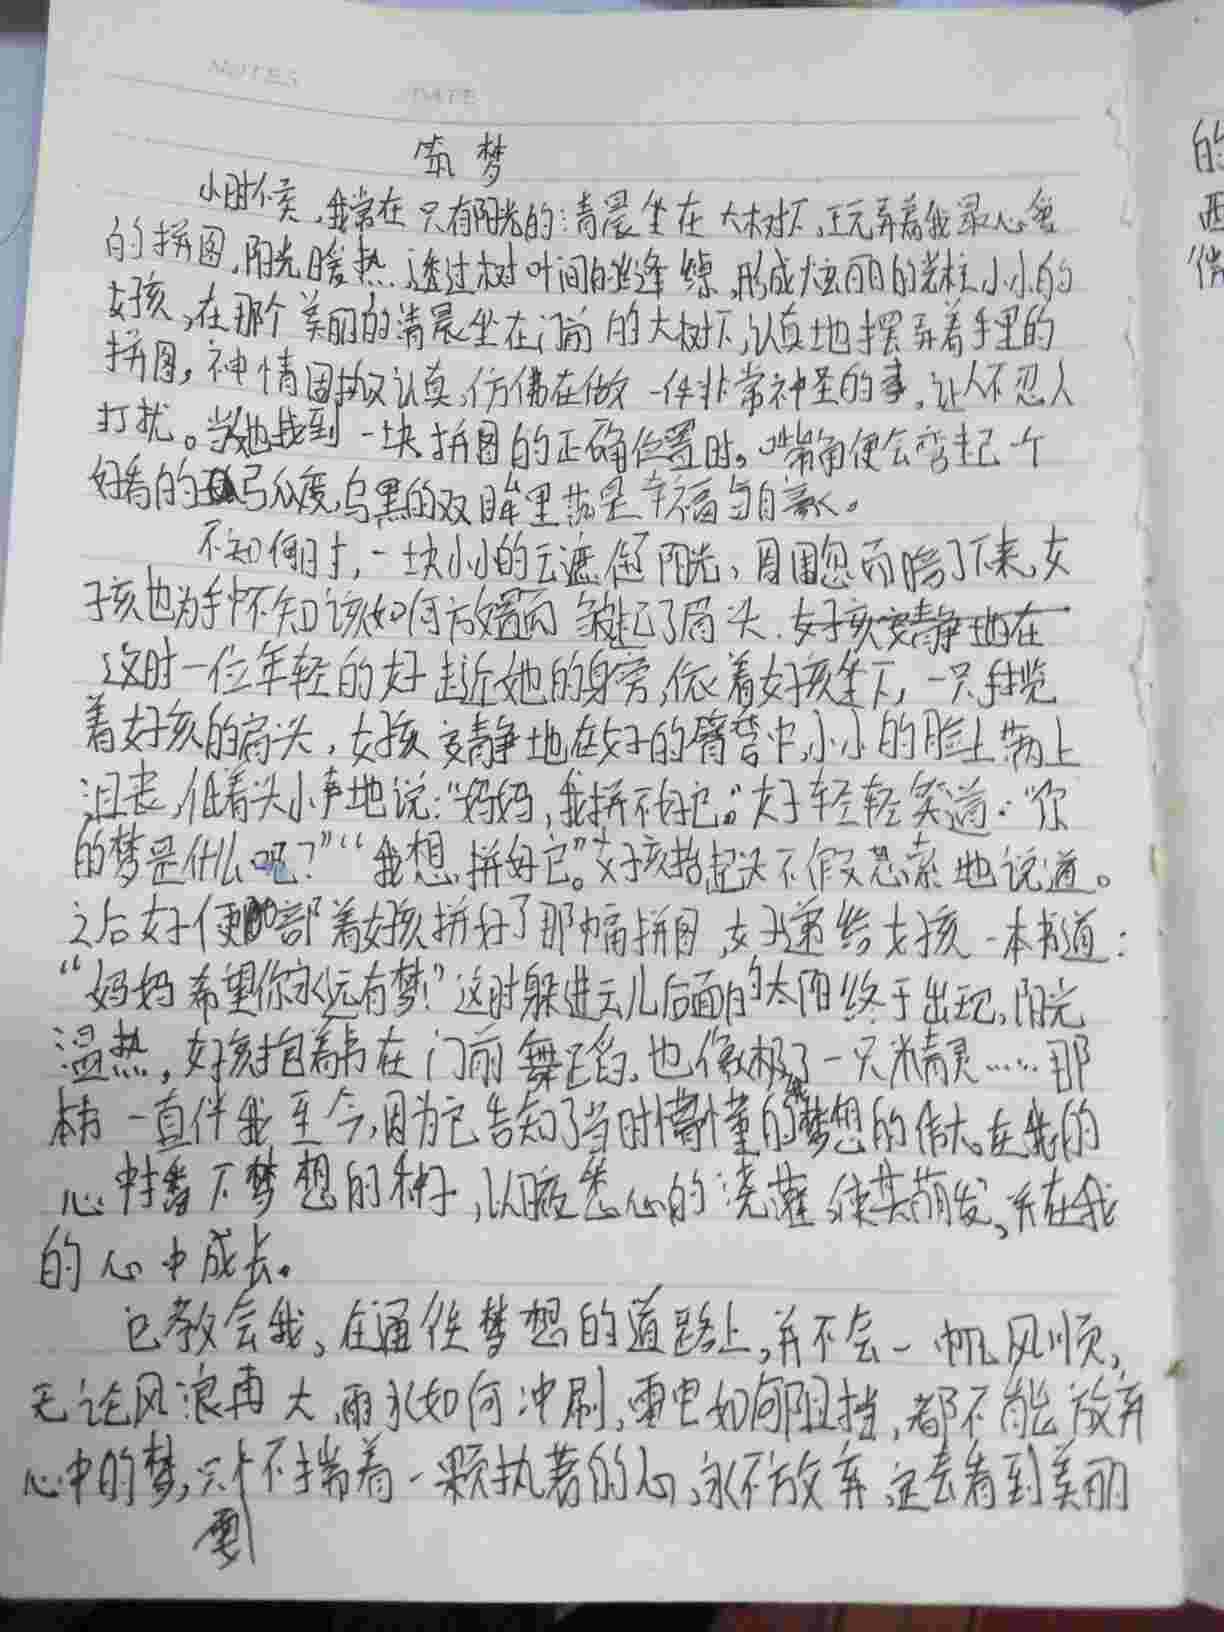 NOTES
DATE
筑梦
小时候,我常在只有阳光的清晨坐在大树下,玩弄着我最心爱
的拼图,阳光暖热,透过树叶间的缝隙,形成炫丽的光柱,小小的
女孩,在那个美丽的清晨坐在门前的大树下,认真地摆弄着手里的
拼图,神情固执认真,仿佛在做一件非常神圣的事,让人不忍人
打扰。当她找到一块拼图的正确位置时。嘴角便会弯起一个
好看的弓度,乌黑的双眸里荡是幸福与自豪。
不知何时,一块小小的云遮住了阳光,周围忽而暗了下来,女
孩也为手中不知该如何放置而皱起了眉头.女孩安静地在
这时一位年轻的女子走近她的身旁,依着女孩坐下,一只手揽
着女孩的肩头,女孩安静地在女子的臂弯中,小小的脸上带上
沮丧,低着头小声地说:“妈妈,我拼不好它。”女子轻轻笑道:“你
的梦是什么呢?”“我想,拼好它。”女孩抬起头不假思索地说道。
之后女子便陪着女孩拼好了那幅拼图,女子递给女孩一本书道:
“妈妈希望你永远有梦!”这时躲进云儿后面的太阳终于出现,阳光
温热,女孩抱着书在门前舞蹈,也像极了一只米精灵……那
本书一直伴我至今,因为它告知了当时懵懂的我梦想的伟大。在我的
心中播下梦想的种子,以最悉心的浇灌,使其萌发,并在我
的心中成长。
它教会我,在通往梦想的道路上,并不会一帆风顺,
无论风浪再大,雨水如何冲刷,雷电如何阻挡,都不能放弃
心中的梦,只要揣着一颗执着的心,永不放弃,定会看到美丽
的
西